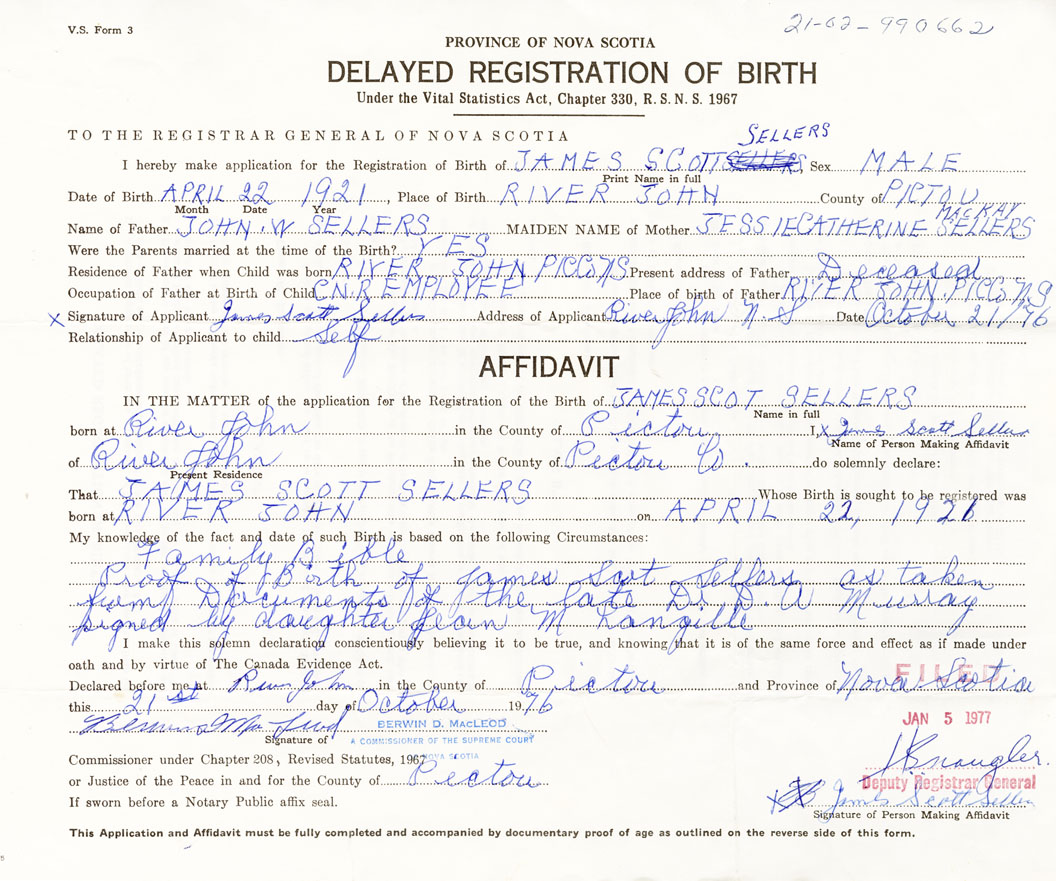 V.S. Form 3
21-02-990662
PROVINCE OF NOVA SCOTIA
DELAYED REGISTRATION OF BIRTH
Under the Vital Statistics Act, Chapter 330, R.S.N.S. 1967
TO THE REGISTRAR GENERAL OF NOVA SCOTIA
SELLERS
I hereby make application for the Registration of Birth of JAMES SCOTT SELLERS, Sex MALE
Print Name in full
Date of Birth APRIL 22 1921, Place of Birth RIVER JOHN County of PICTOU
Month Date Year
MACKAY
Name of Father JOHN.W SELLERS MAIDEN NAME of Mother JESSIE CATHERINE SELLERS
Were the Parents married at the time of the Birth? YES
Residence of Father when Child was born RIVER JOHN PICCO NS Present address of Father Deceased
Occupation of Father at Birth of Child C.N.R EMPLOYEE Place of birth of Father RIVER JOHN PICCO NS
X Signature of Applicant James Scott Sellers Address of Applicant River John N.S Date October 21/76
Relationship of Applicant to child Self
AFFIDAVIT
IN THE MATTER of the application for the Registration of the Birth of JAMES SCOT SELLERS
Name in full
born at River John in the County of Pictou I, x James Scott Sellers
Name of Person Making Affidavit
of River John in the County of Pictou Co. do solemnly declare:
Present Residence
That JAMES SCOTT SELLERS Whose Birth is sought to be registered was
born at RIVER JOHN on APRIL 22, 1921
My knowledge of the fact and date of such Birth is based on the following Circumstances:
Family Bible
Proof of Birth of James Scot Sellers as taken
from Documents of the late Dr. D. A Murray
signed by daughter Jean M Langille
I make this solemn declaration conscientiously believing it to be true, and knowing that it is of the same force and effect as if made under
oath and by virtue of The Canada Evidence Act.
FILED
Declared before me at River John in the County of Pictou and Province of Nova Scotia
this 21st day of October 1976
JAN 5 1977
Berwin D MacLeod BERWIN D. MacLEOD
Signature of A COMMISSIONER OF THE SUPREME COURT
NOVA SCOTIA
Commissioner under Chapter 208, Revised Statutes, 1967
or Justice of the Peace in and for the County of Pictou
Deputy Registrar General
If sworn before a Notary Public affix seal.
James Scott Sellers
Signature of Person Making Affidavit
This Application and Affidavit must be fully completed and accompanied by documentary proof of age as outlined on the reverse side of this form.